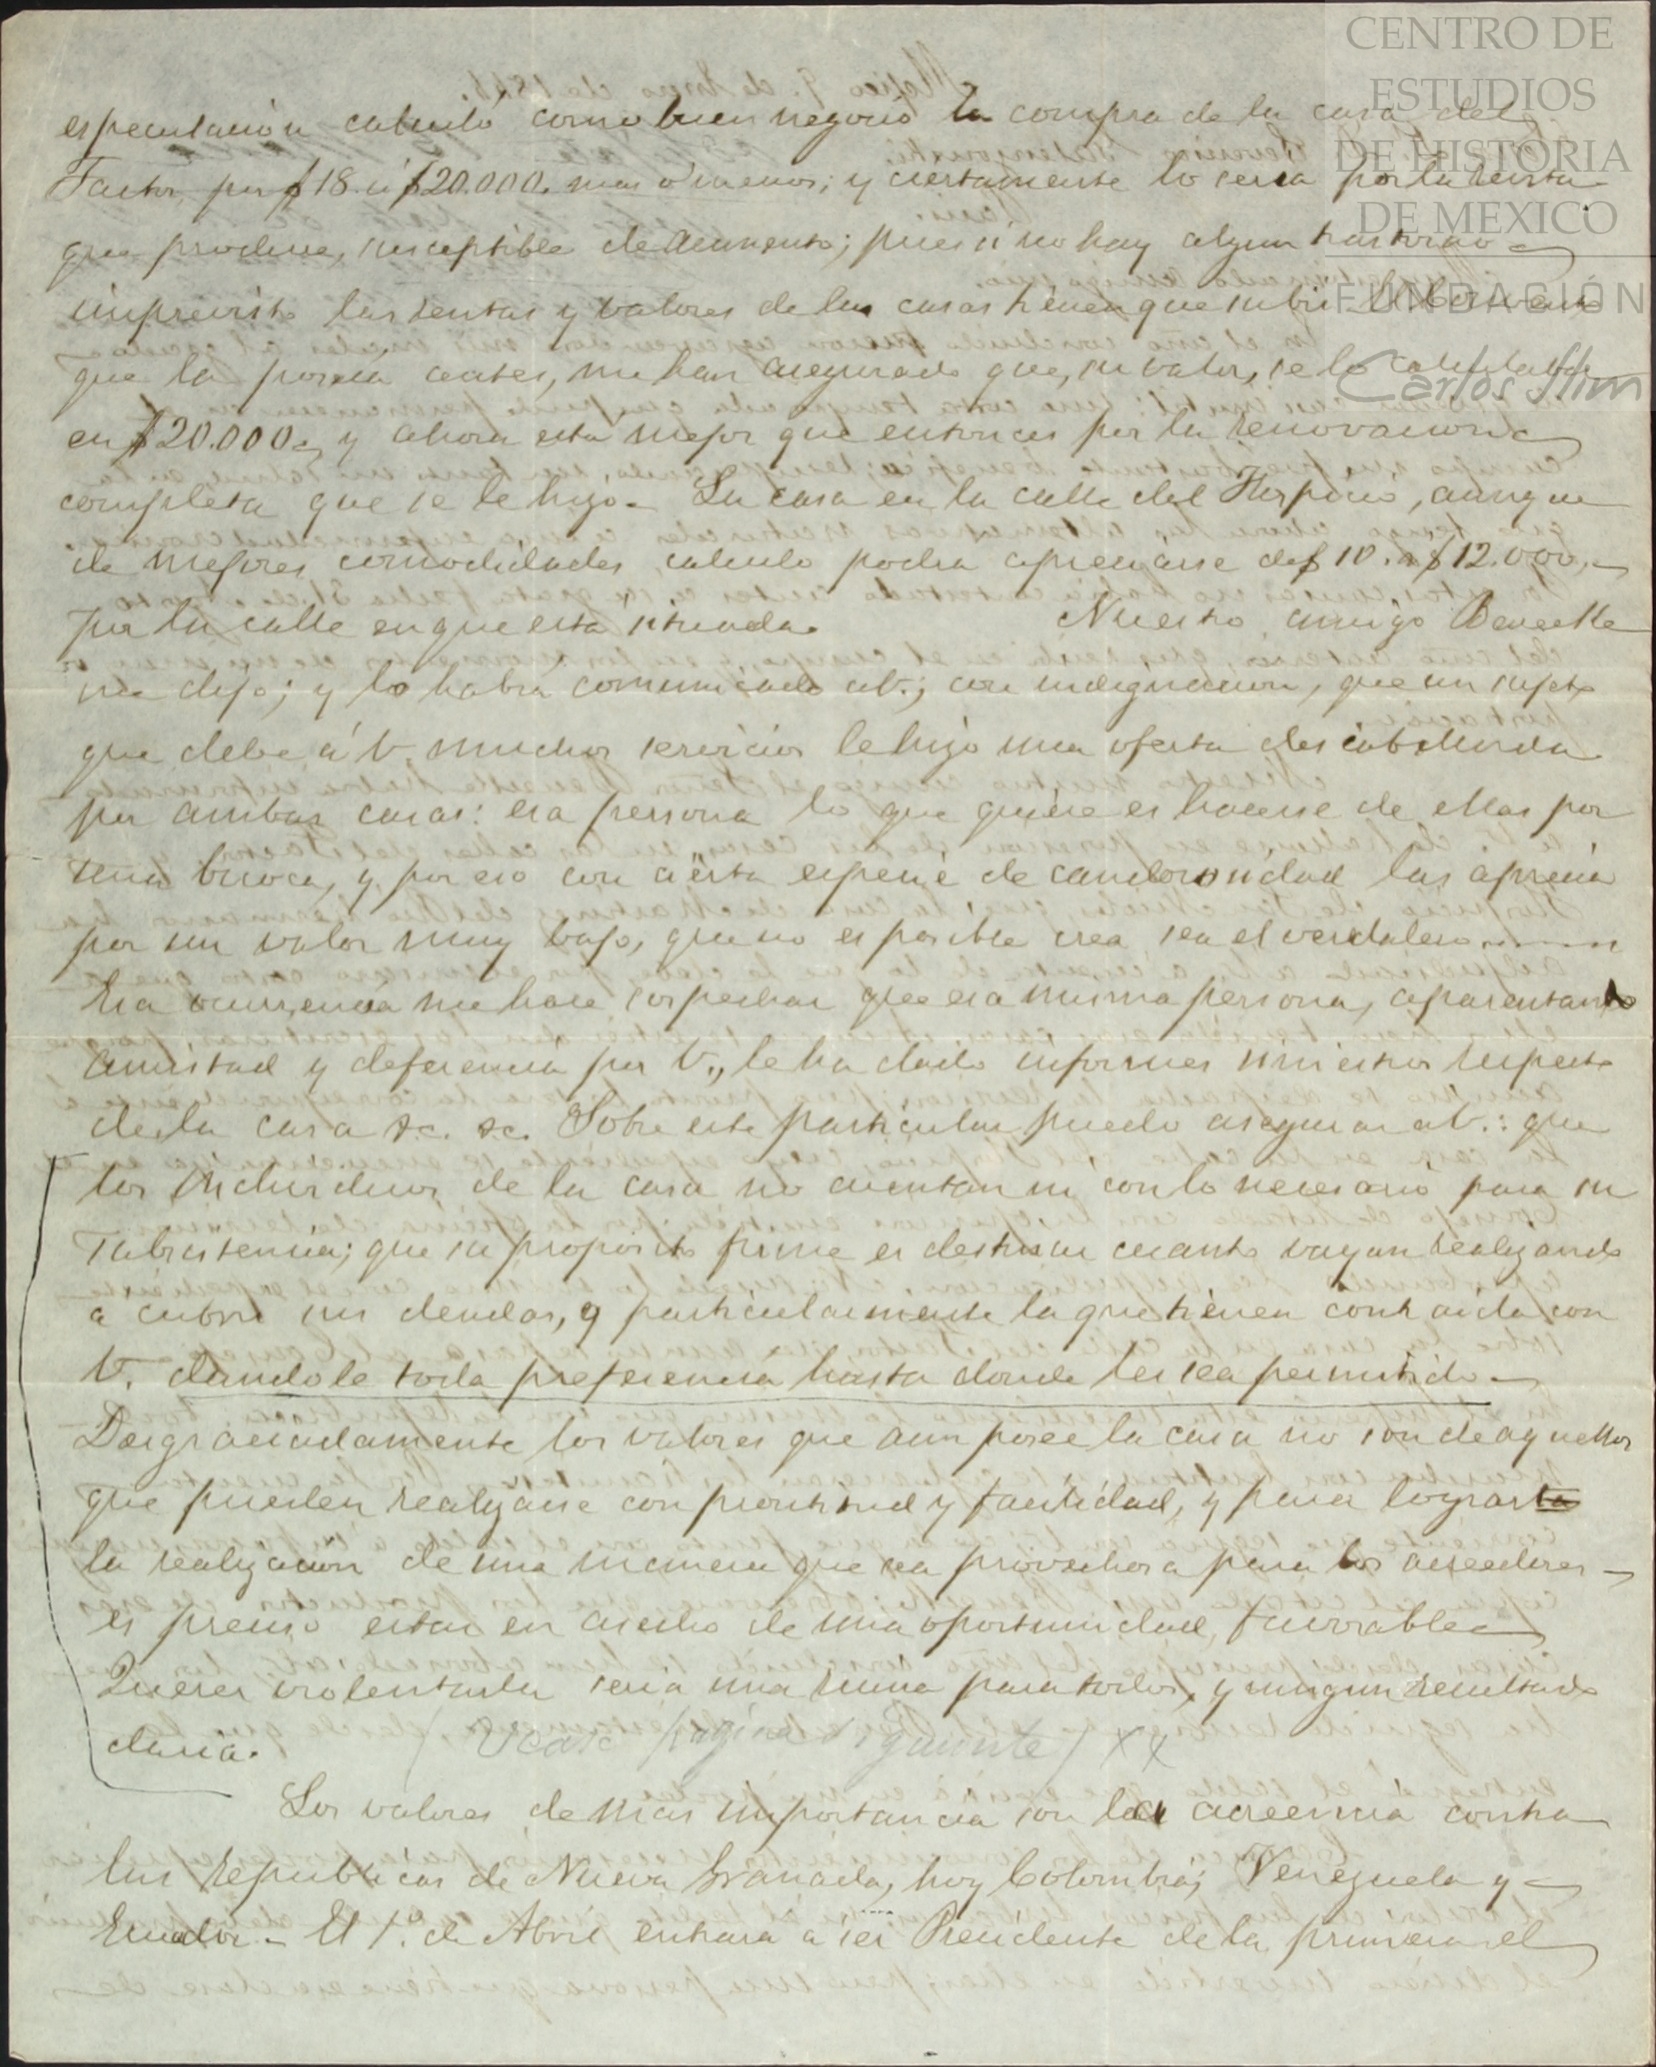 CENTRO DE
ESTUDIOS
DE HISTORIA
DE MEXICO
FUNDACIÓN
Carlos Slim
especulación calculó como buen negocio la compra de la casa del
Factor por $18. a $20.000. mas ó menos; y ciertamente lo seria por la renta
que produce, suceptible de aumento; pues si no hay algun trastorno
imprevisto las rentas y valores de las casas tienen que subir.
que la poseia antes, me han asegurado que, su valor, se lo calculaba
en $20.000. y ahora esta mejor que entonces por la renovacion
completa que se le hizo. La casa en la calle del Hospicio, aunque
de mejores comodidades calculo podra apreciarse de $10. a $12.000.
por la calle en que esta situada. Nuestro amigo
me dijo; y lo habrá comunicado a V.; con indignacion, que un sujeto
que debe á V. muchos servicios le hizo una oferta descabellada
por ambas casas: esa persona lo que quiere es hacerse de ellas por
tena broca, y por eso con cierta especie de candorosidad las aprecia
por un valor muy bajo, que no es posible crea sea el verdadero
Esa ocurrencia me hace sospechar que esa misma persona, aparentando
amistad y deferencia por V., le ha dado informes siniestros respecto
de la casa &c. &c. Sobre este particular puedo asegurar a V.: que
los individuos de la casa no cuentan ni con lo necesario para su
subsistencia; que su proposito firme es destinar cuanto vayan realizando
a cubrir sus deudas, y particularmente la que tienen contraida con
V. dandole toda preferencia hasta donde les sea permitido
Desgraciadamente los valores que aun posee la casa no son de aquellos
que pueden realizarse con prontitud y facilidad, y para lograr
la realizacion de una manera que sea provechosa para los acreedores
es preciso estar en acecho de una oportunidad favorable
Querer violentarla seria una ruina para todos, y ningun resultado
daria. (Vease pagina siguiente) XX
Los valores de mas importancia son la acreencia contra
las republicas de Nueva Granada, hoy Colombia; Venezuela y
Ecuador. El 1.º de Abril entrará á ser Presidente de la primera el